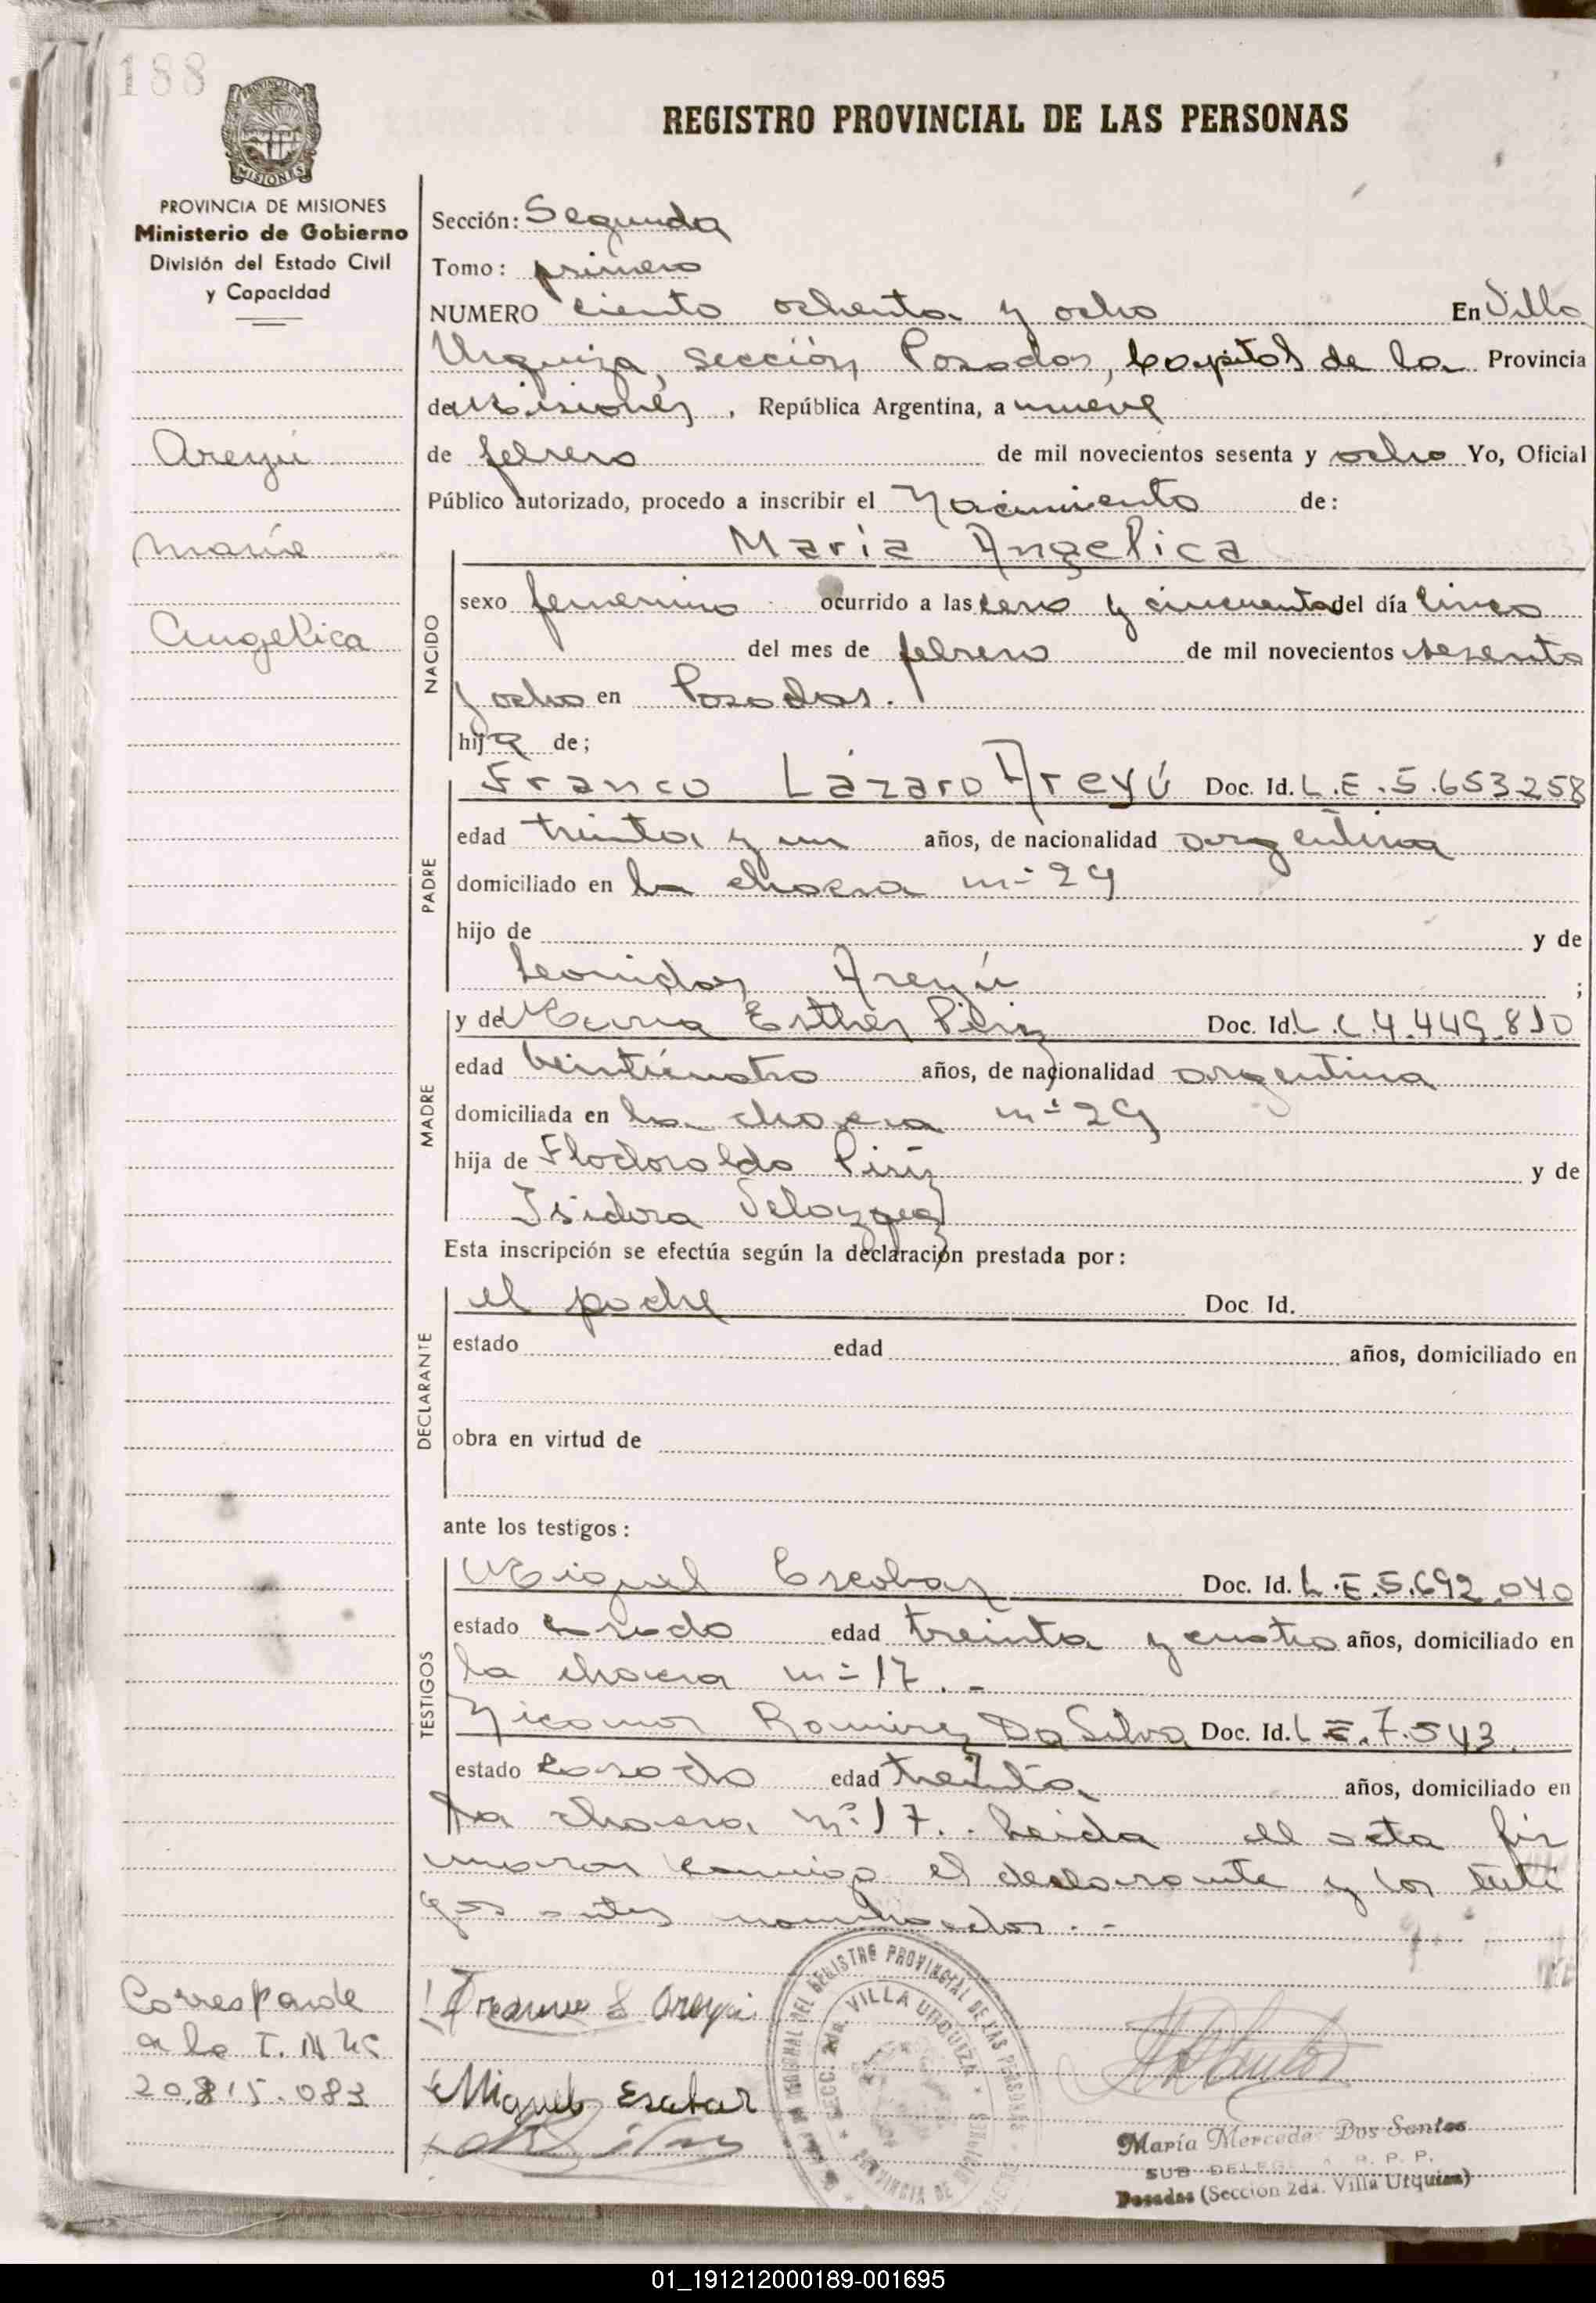 188
PROVINCIA DE MISIONES
Ministerio de Gobierno
División del Estado Civil
y Capacidad
REGISTRO PROVINCIAL DE LAS PERSONAS
Sección: Segunda
Tomo: primero
NUMERO ciento ochenta y ocho En Villa
Urquiza, sección Posadas, Capital de la Provincia
de Misiones, República Argentina, a nueve
de febrero de mil novecientos sesenta y ocho Yo, Oficial
Público autorizado, procedo a inscribir el Nacimiento de:
Areyú
María
Angelica
NACIDO
María Angelica
sexo femenino ocurrido a las cero y cincuenta del día cinco
del mes de febrero de mil novecientos sesenta
y ocho en Posadas.
hija de;
PADRE
Franco Lázaro Areyú Doc. Id. L.E.5.653258
edad treinta y un años, de nacionalidad argentina
domiciliado en la chacra nº 29
hijo de y de
Leonidas Areyú ;
MADRE
y de María Esther Piriz Doc. Id. L.C.4.449.810
edad veinticuatro años, de nacionalidad argentina
domiciliada en la chacra nº 29
hija de Flodoraldo Piriz y de
Isidora Velazquez
Esta inscripción se efectúa según la declaración prestada por:
DECLARANTE
el padre Doc. Id.
estado edad años, domiciliado en
obra en virtud de
ante los testigos:
TESTIGOS
Miguel Escobar Doc. Id. L.E.5.692.040
estado casado edad treinta y cuatro años, domiciliado en
la chacra nº 17.-
Nicanor Ramirez Da Silva Doc. Id. L.E.7.543.
estado casado edad treinta años, domiciliado en
la chacra nº 17.. Leida el acta fir
maron conmigo el declarante y los testi
gos antes nombrados.-
Corresponde
a la T. N
20.815.083
Franco L Areyú
Miguel Escobar
REGISTRO PROVINCIAL DE LAS PERSONAS
SECC. 2da. VILLA URQUIZA
PROVINCIA DE
María Mercedes Dos Santos
SUB DELEG. R. P. P.
Posadas (Sección 2da. Villa Urquiza)
01_191212000189-001695